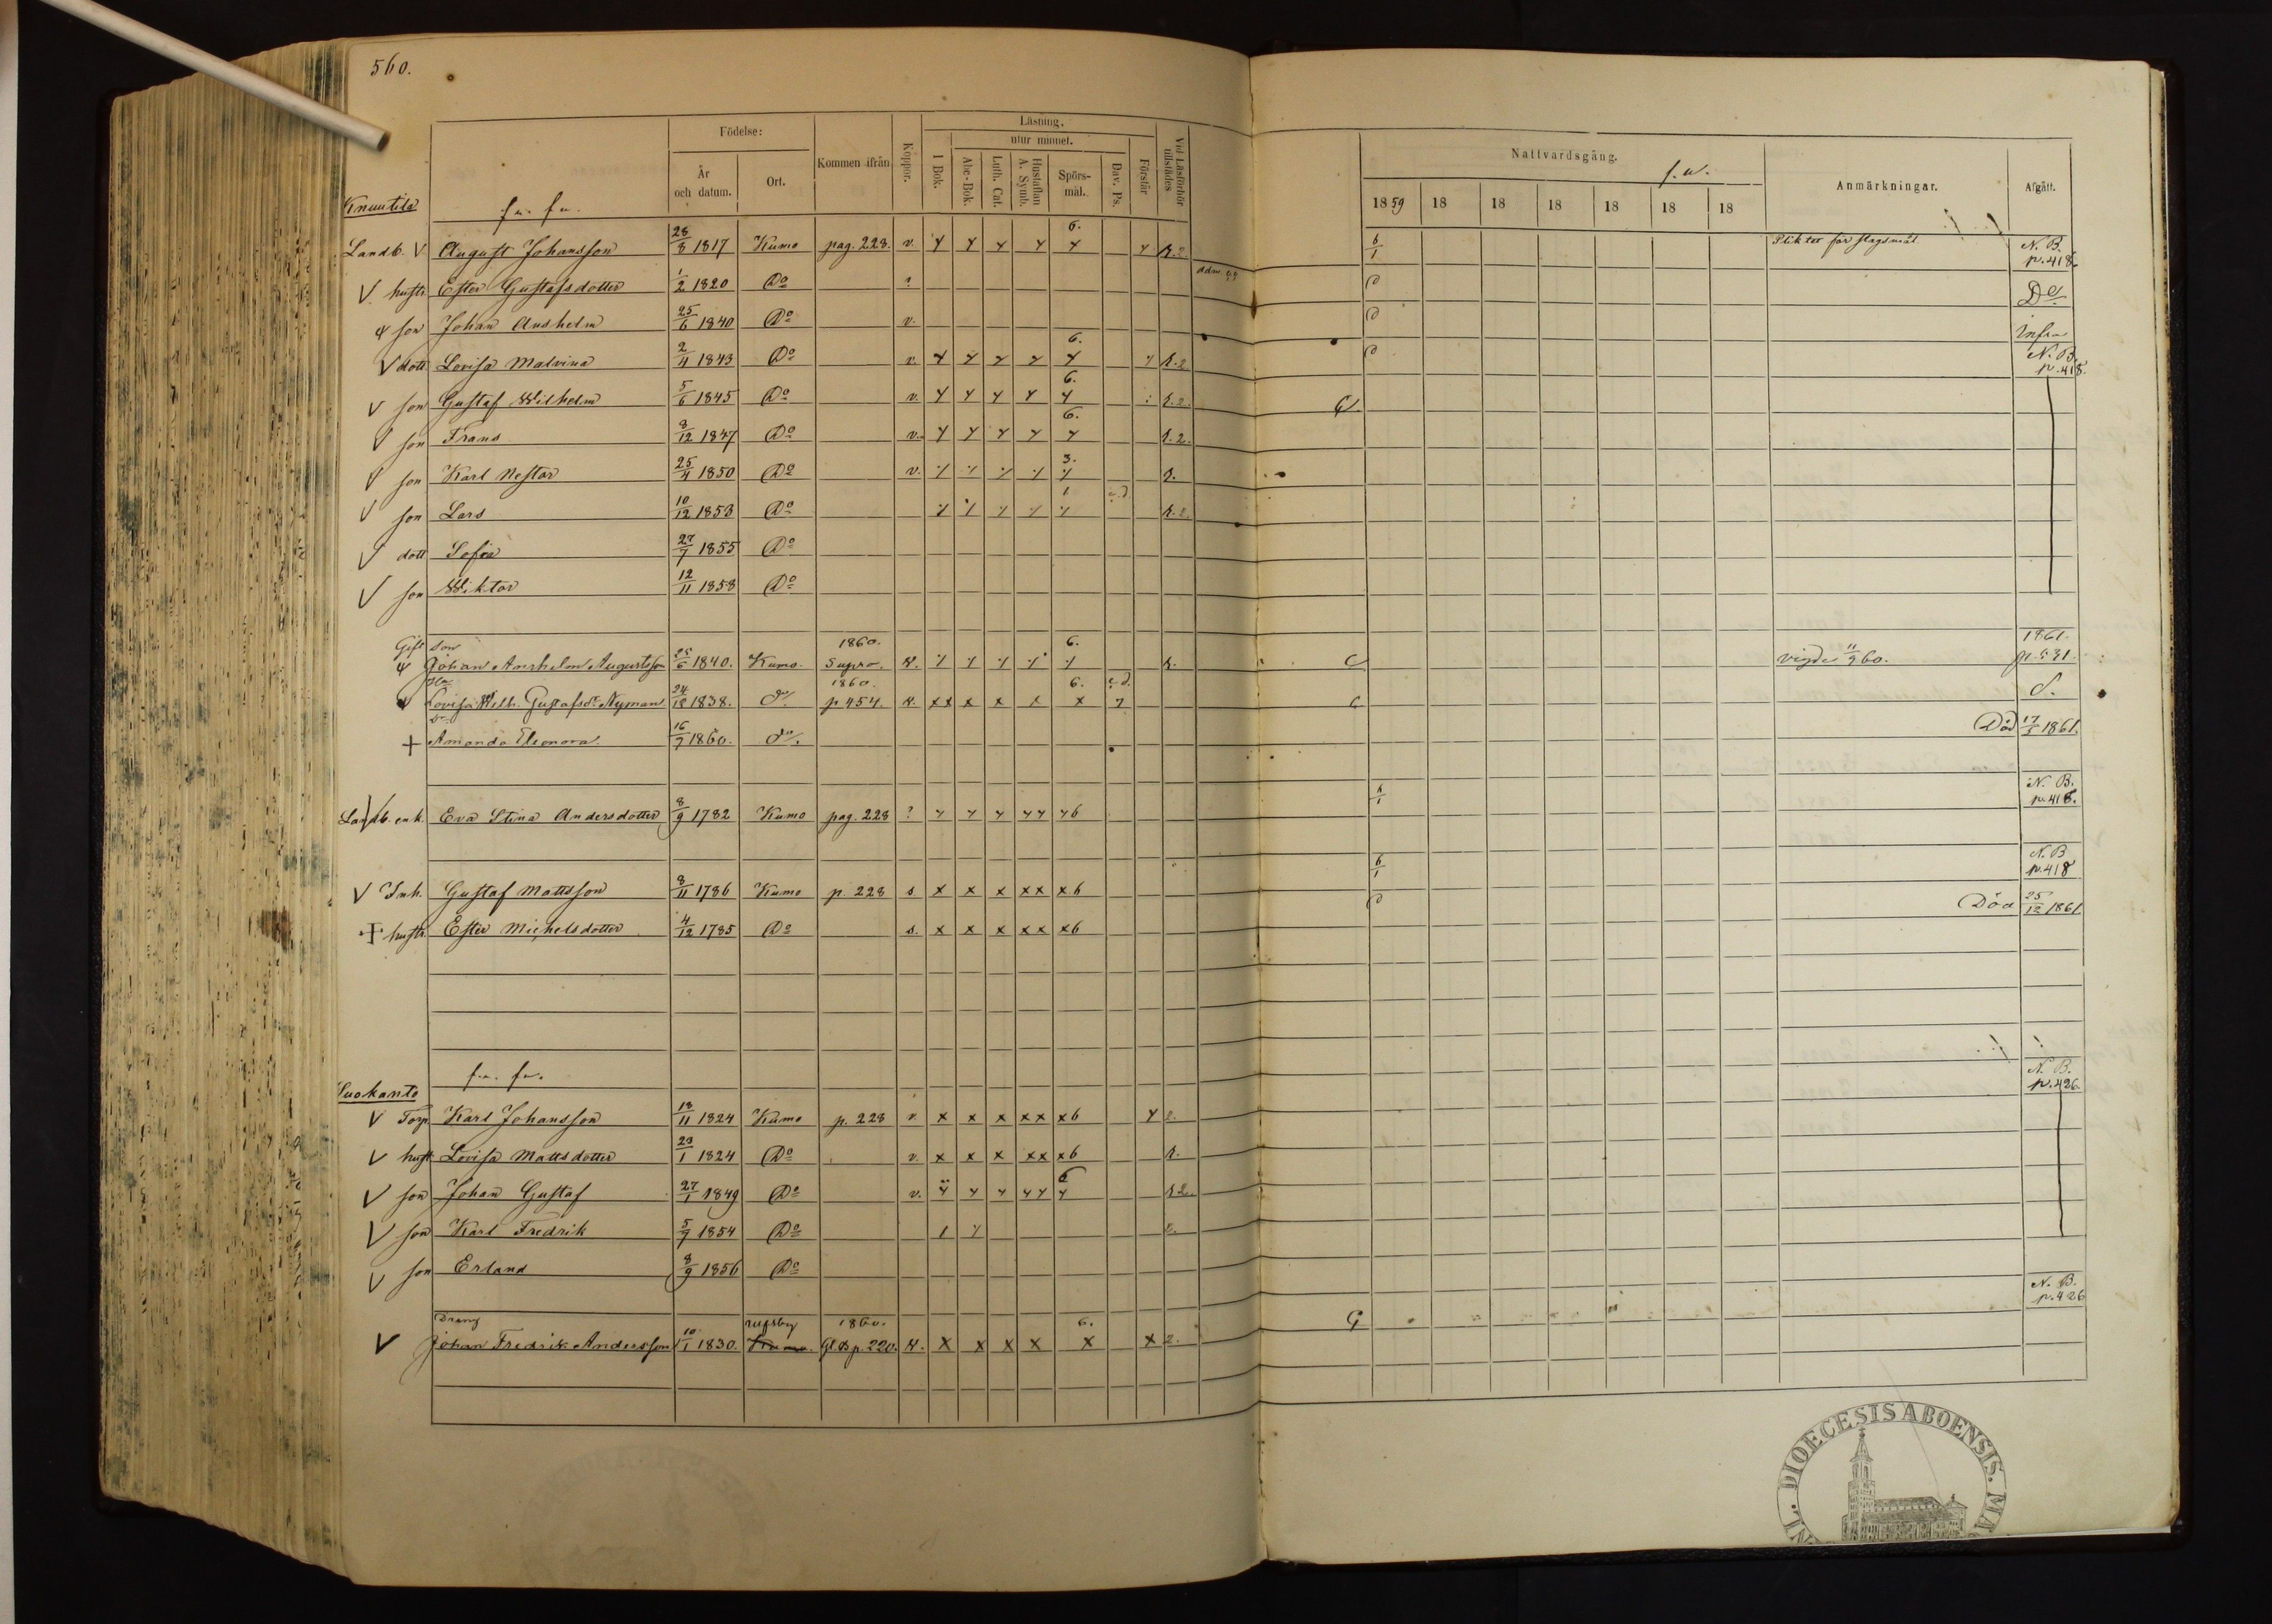 560.
Födelse:
Kommen ifrån
Koppor.
Läsning.
utur minnet.
I Bok.
Abc-Bok.
Luth. Cat.
Hustaflan A. Symb.
Spörs-mål.
Dav. Ps.
Förstår
Vid Läsförhör tillstädes
År och datum.
Ort.
Nattvardsgång.
Anmärkningar.
Afgått.
1859 18 18 18 18 18 18
Knuutila
Landb. V August Johansson 28/8 1817 Kumo pag. 228. v. 6. Pliktat för slagsmål N. B. p. 418.
V hustr Ester Gustafsdotter 1/2 1820 Do ? Do
son Johan Anshelm 25/6 1840 Do v. Infra
V dott Lovisa Malvina 2/11 1843 Do v. 6. N. B. p. 418.
V son Gustaf Wilhelm 5/6 1845 Do v. 6.
V son Frans 8/12 1847 Do v. 6.
V son Karl Nestor 25/4 1850 Do v. 3.
V son Lars 10/12 1853 Do
V dott Sofia 27/7 1855 Do
V son Wiktor 12/11 1858 Do
Gift son 1860. 6. 1861.
Johan Anshelm Augustsson 25/6 1840. Kumo. Supra. vigde 11/9 60.
1860. 6.
Lovisa Wilh. Gustafsdr Nyman 24/12 1838. do p 454.
+ Amanda Eleonora. 16/9 1860. do. Död 17/5 1861.
Landb. enk. Eva Stina Andersdotter 8/9 1782 Kumo pag. 228 ? 6 N. B. p. 418.
V Inh. Gustaf Mattsson 8/11 1786 Kumo p. 228 s x x x xx x6 N. B p. 418
+ hustr. Ester Michelsdotter 4/12 1785 Do s. x x x xx x6 Död 25/12 1861
Suokanto
V Torp. Karl Johansson 18/11 1824 Kumo p. 228 v x x x xx x6 N. B. p. 426.
V hust Lovisa Mattsdotter 23/1 1824 Do v. x x x xx x6
V son Johan Gustaf 27/1 1849 Do v. 6
V son Karl Fredrik 5/7 1854 Do
V son Erland 8/9 1856 Do
Dräng 1860. 6. N. B. p. 426
V Johan Fredrik Andersson 10/1 1830. Kumo. Gl. B p. 220. x x x x x x 2.
DIOECESIS ABOENSIS. MA